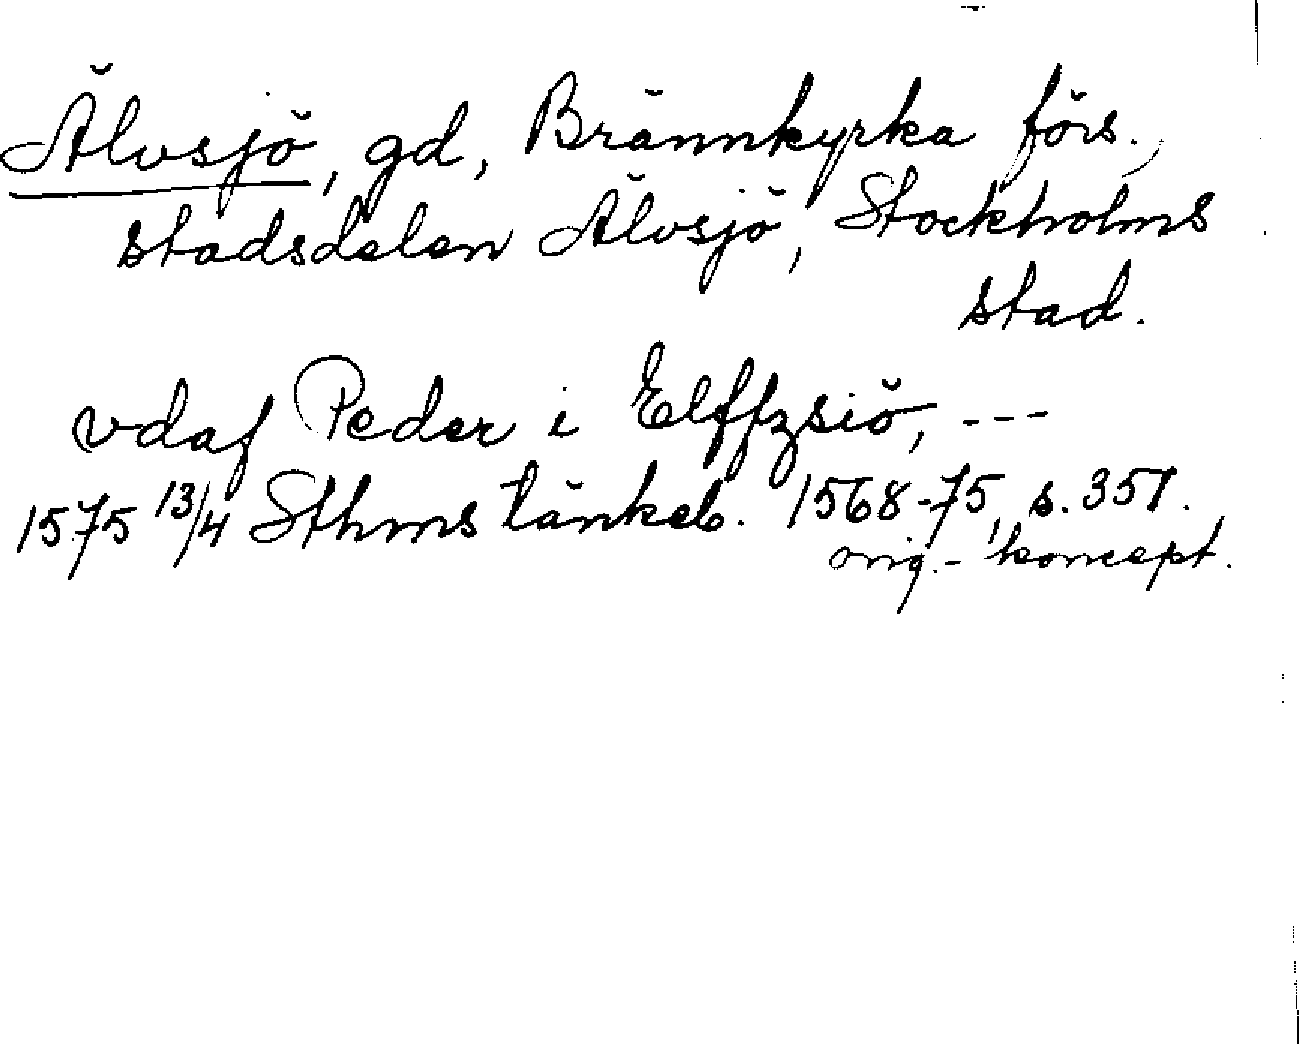 Älvsjö, gd, Brännkyrka förs.,
stadsdelen Älvsjö, Stockholms
stad.
vdaf Peder i Elffzsiö, ---
1575 13/4 Sthms tänkeb. 1568-75, s. 351.
orig.-koncept.